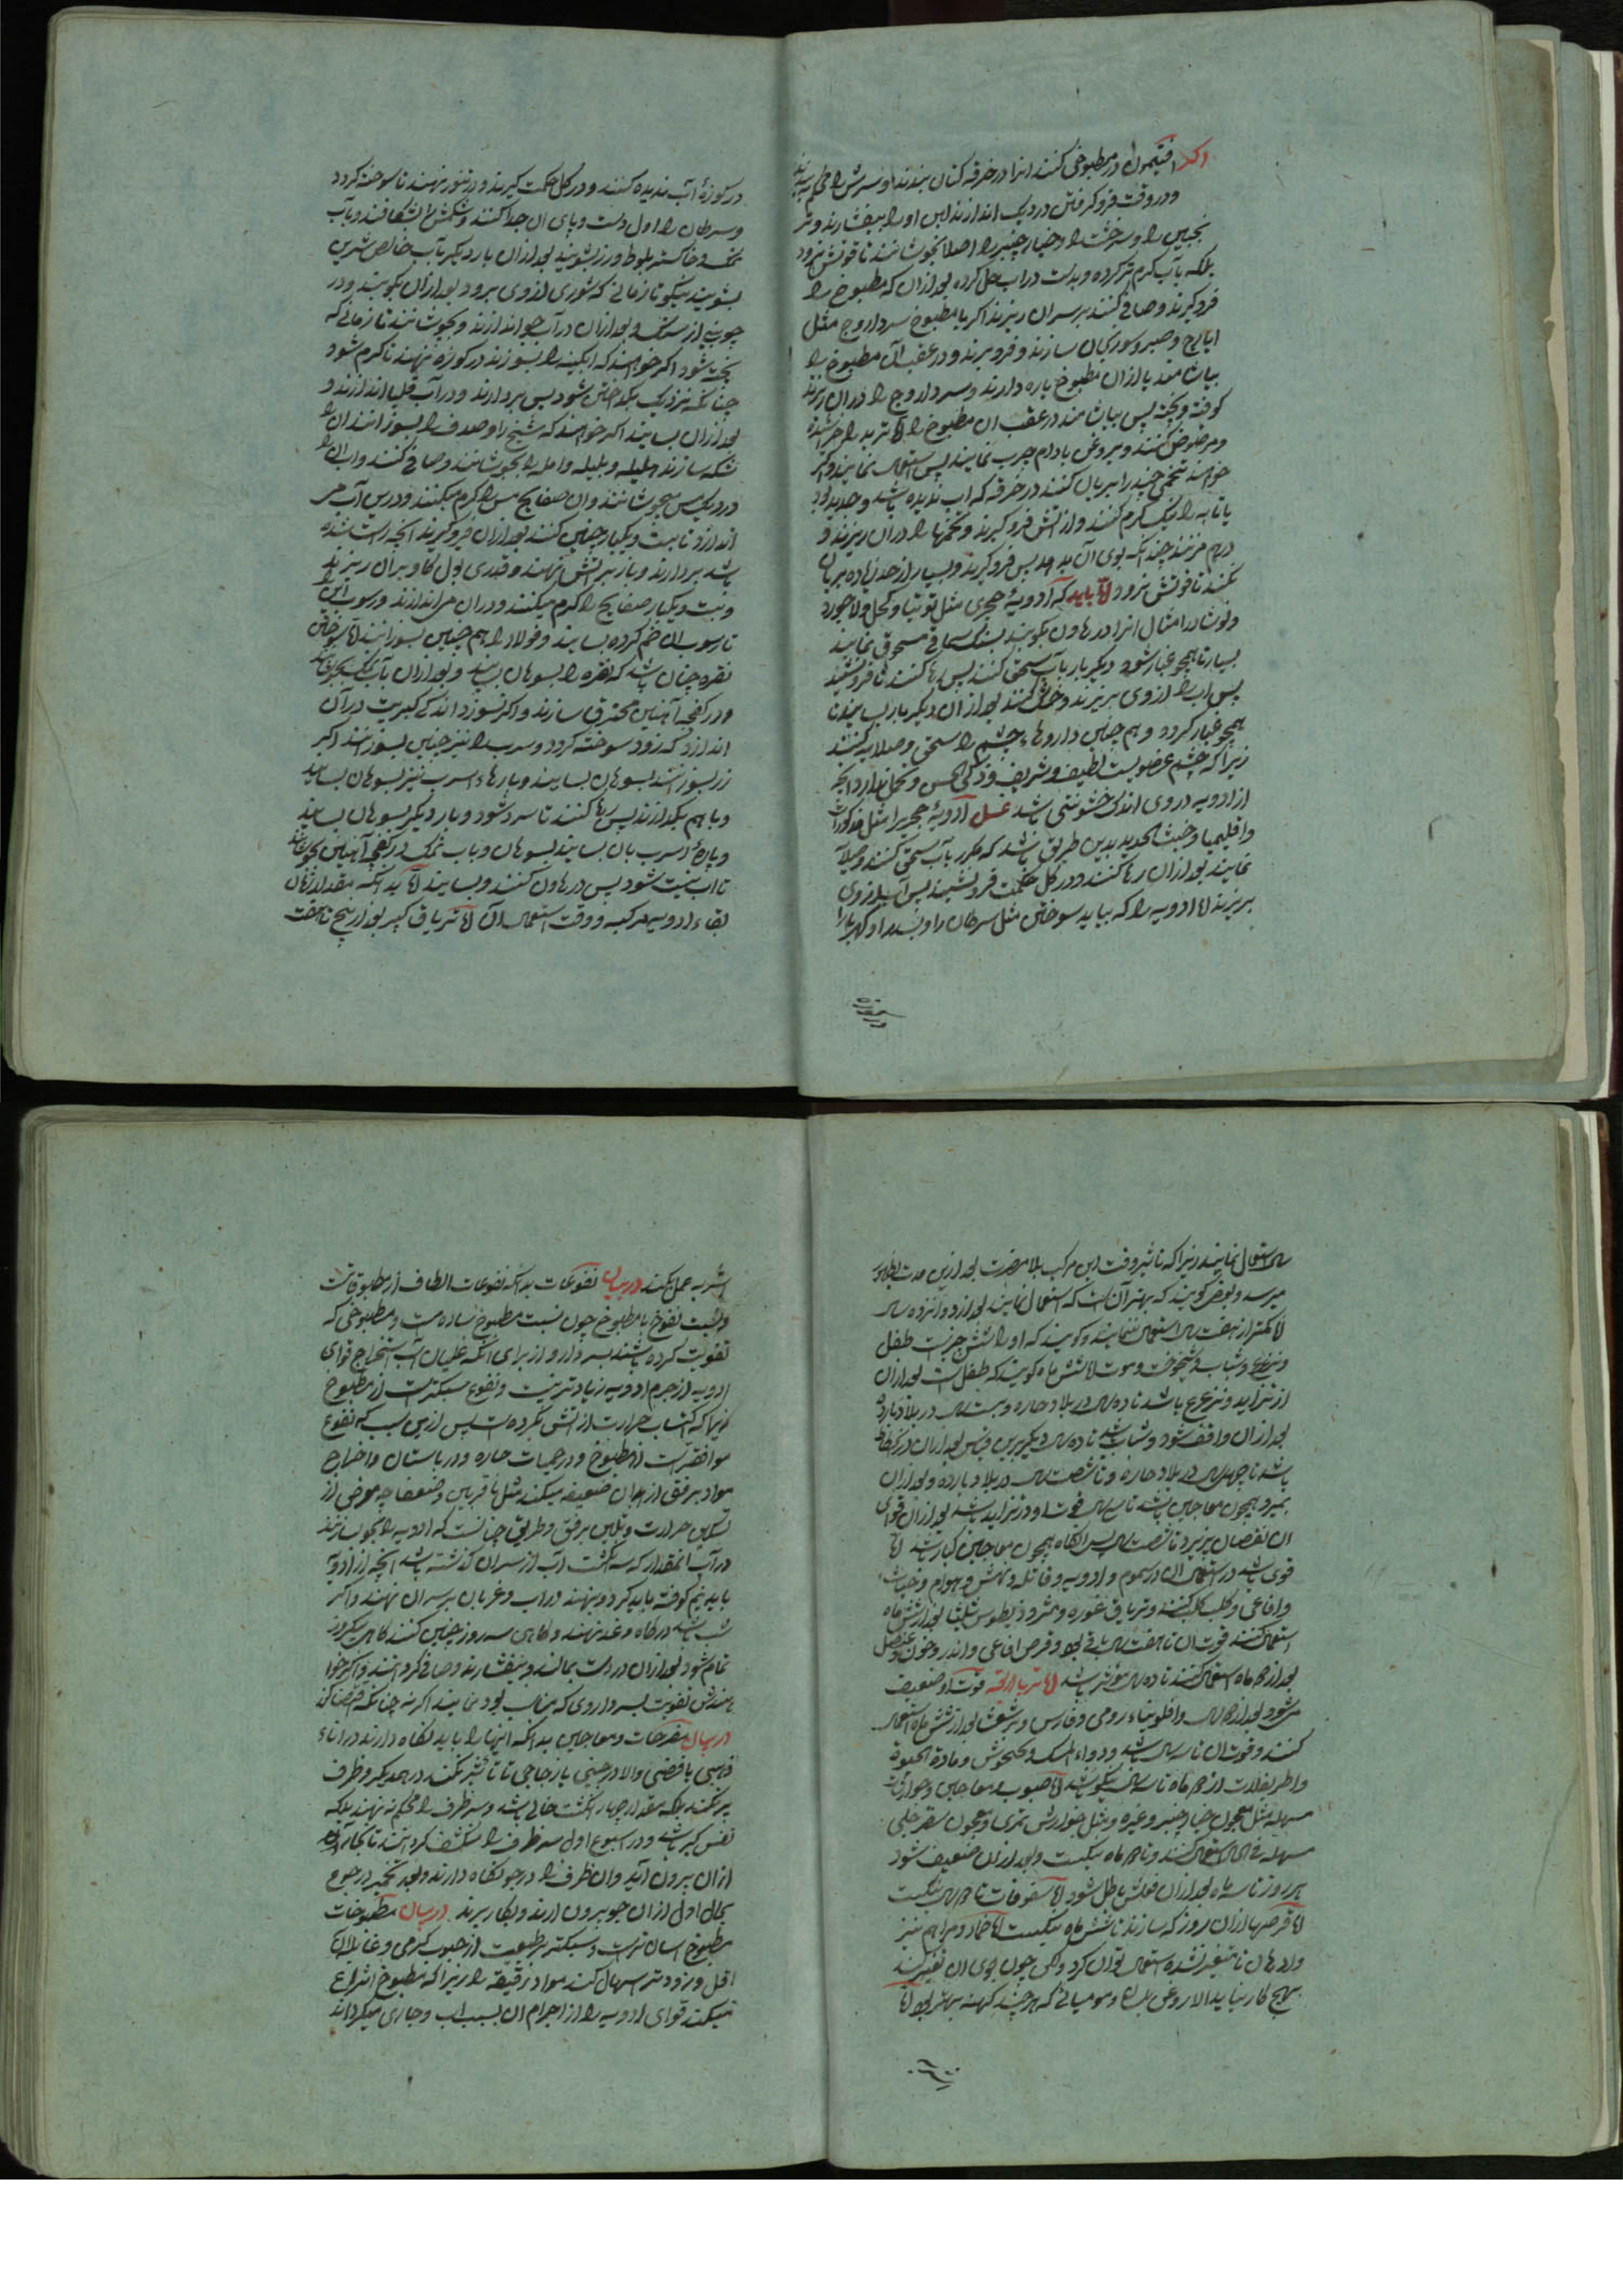 اکر افتیمون در مطبوخی کنند انرا در خرقه کتان ببندند و سرش را محکم
و در وقت فرو کرفتن در دیک اندازند پس او را بیفشارند و تر
نجبین را و سرخشت را و خیار چنبر را اصلا نجوشانند تا قوتش نرود
بلکه بآب کرم تر کرده و بدست در آب حل کرده بعد ازان که مطبوخ را
فرو کیرند و صافی کنند بر سر ان ریزند اکر با مطبوخ سر دارو مثل
ایارج و صبر و سورنجان سازند و فرو برند و در عقب آن مطبوخ را
بیاشامند یا ازان مطبوخ پاره دارند و سر دارو را دران ریزند
کوفته و بیخته پس بیاشامند در عقب ان مطبوخ را اما تربد را خراشیده
و مرضوض کنند و بروغن بادام چرب نمایند پس استعمال نمایند و اکر
خواهند تخمی چند را بریان کنند در خرقه که آب ندیده باشد و جدید بود
یا تابه را نیک کرم کنند و از اتش فرو کیرند و تخمها را دران ریزند و
برهم مزنند چندانکه بوی آن بدمد پس فرو کیرند و بسیار از حد زیاده بریان
نکنند تا قوتش نرود اما باید که ادویهٔ حجری مثل توتیا و کحل و لاجورد
و نوشادر امثال انرا در هاون بکوبند بسنک سماقی مسحوق نمایند
بسیار تا همچو غبار شود و دیکر بار بآب سحق کنند پس رها کنند تا فرو نشیند
پس اب را از وی بریزند و خشک کنند بعد ازان دیکر بار بسایند تا
همچو غبار کردد و هم چنین داروهاء چشم را سحق و صلایه کنند
زیرا که چشم عضویست لطیف و شریف و ذکی الحس و تحمل ندارد انکه
از ادویه در وی اندک خشونتی باشد غسل ادویهٔ حجریرا مثل مذکورات
و اقلیمیا و خبث الحدید بدین طریق باشد که مکرر بآب سحق کنند و صلایه
نمایند بعد ازان رها کنند و در کل حکمت فرو نشیند پس آب را از وی
بریزند اما ادویه را که بباید سوختن مثل سرطان را و بسد را و کهربا را
در کوزهٔ آب ندیده کنند و در کل حکمت کیرند و در تنور نهند تا سوخته کردد
و سرطان را اول دست و پای ان جدا کنند و شکمش را بشکافند و بآب
نمک و خاکستر بلوط و رز بشویند بعد ازان بار دیکر بآب خالص شیرین
بشویند نیکو تا زمانی که شوری از وی برود بعد ازان بکوبند و در
چوبنه از سنک و بعد ازان در آب جو اندازند و بجوشانند تا زمانی که
پخته شود اکر خواهند که ابکینه را بسوزند در کوزه نهند تا کرم شود
چنانکه نزدیک بکداختن شود پس بردارند و در آب قلی اندازند و
بعد ازان بسایند اکر خواهند که شیخ را و صدف را بسوزانند ان را
تنکه سازند و هلیله و بلیله و امله را بجوشانند و صافی کنند و اب ان را
در دیک مس بجوشانند و ان صفایح مس را کرم میکنند و در این آب می
اندازند تا بیست و یکبار چنین کنند بعد ازان فرو کیرند انچه راست شده
باشد بردارند و باز بر اتش نهند و قدری بول کاو بران ریزند
و بیست و یکبار صفایح را کرم میکنند و دران می اندازند و رسوب این
تا رسوب ان ضم کرده بسایند و فولاد را هم چنین بسوزانند اما سوختن
نقره چنان باشد که نقره را بسوهان بسایند و بعد ازان بآب نمک بجوشانند
و در کفچه آهنین محترق سازند و اکر نسوزد اندکی کبریت در آن
اندازند که زود سوخته کردد و سرب را نیز چنین بسوزانند اکر
زر بسوزانند بسوهان بسایند و پارهاء اسرب نیز بسوهان بسایند
و باهم بکدازند پس رها کنند تا سرد شود و بار دیکر بسوهان بسایند
و پارهٔ اسرب بان بسایند بسوهان و باب نمک در کفچه آهنین بجوشانند
تا اب نیست شود پس در هاون کنند و بسایند اما بدانکه مقدار زمان
بقاء ادویه مرکبه و وقت استعمال آن اما تریاق کبیر بعد از پنج تا هفت
سال استعمال نمایند زیرا که تاثیر وقت این مرکب بلا مضرت بعد ازین مدت بظهور
میرسد و بعضی کویند که بهتر آن است که استعمال نمایند بعد از دوازده سال
اما کمتر از هفت سال استعمال ننمایند و کویند که او را شش حیزست طفل
و ترعرع و شباب و شیخوخت و موت اما تا شش ماه کویند که طفل است بعد ازان
در تزاید و ترعرع باشد تا ده سال در بلاد حاره و بیست سال در بلاد بارده
بعد ازان واقف شود و شباب باشد تا ده سال دیکر برین قیاس بعد ازان در انحطاط
باشد تا چهل سال در بلاد حاره و تا شصت سال در بلاد بارده و بعد ازان
بمیرد همچون معاجین باشد تا سی سال قوت او در تزاید باشد بعد ازان قوای
ان نقصان پذیرد تا شصت سال پس انکاه همچون معاجین کبار باشد اما
قوی باشد در استعمال ان در سموم و ادویه و قاتله و نهش و هوام و حیات
و افاعی و کلب کلب کنند و تریاق عزره و مثرودیطوس ثلثا بعد از شش ماه
استعمال کنند قوت ان تا هفت سال باقی بود و قرص افاعی و اندروخون و عنصل
بعد از دو ماه استعمال کنند تا ده سال مؤثر باشد اما تریاق اربعه قوت او ضعیف
می شود بعد از دو سال و افلونیاء رومی و فارس و برشعثا بعد از شش ماه استعمال
کنند و قوت ان تا سه سال باشد و دواء المسک و کخوش و مادة الحیوة
و اطریفلات از دو ماه تا سه سال نیکو باشد اما حبوب و معاجین و جوارشات
مسهله مثل معجون خیار چنبر و غیره و مثل جوارش تمری و معجون سفرجلی
مسهله فی الحال استعمال کنند و تا دو ماه نیکست و بعد ازان ضعیف شود
هر روز تا سه ماه بعد ازان فعلش باطل شود اما سفوفات تا دو سال نیکست
اما قرصها ازان روز که سازند تا شش ماه نیکست اما ضماد و مراهم نیز
و ادهان تا متغیر نشده استعمال توان کرد ولکن چون بوی ان تغییر کند
بهیچ کار نیاید الا روغن بلسان و مومیائی که هرچند کهنه بهتر بود اما
اشربه عمل بکنند در بیان نقوعات بدانکه نقوعات الطف از مطبوخاتست
و نسبت نقوع با مطبوخ چون نسبت مطبوخ ساده است و مطبوخی که
تقویت کرده باشند بسر دارو از برای انکه غلیان آب استخراج قوای
ادویه از جرم ادویه زیاد تریست و نقوع سبکترست از مطبوخ
زیرا که اکتساب حرارت از اتش نکرده است پس ازین سبب که نقوع
موافقترست از مطبوخ و در حمیات حاره و در تابستان و اخراج
مواد برفق از ابدان ضعیفه میکند مثل ناقهین و ضعفا چه غرض از
تسکین حرارت و تلیین برفق و طریق چنانست که ادویه را بجوشانند
در آب انمقدار که سه انکشت اب از سر ان کذشته باشد انچه از ادویه
باید نیم کوفته باید کرد و بنهند در اب و غربان بر سر ان نهند و اکر
شب باشد در کاه و غله نهند و کاهی سه روز چنین کنند کاهی یکروز
تمام شود بعد ازان در دست بمالند و بیفشارند و صافی کردانند و اکر خوا
هندش تقویت بسر داروی که مناسب بود نمایند اکر نه چنانکه
در بیان مفرحات و معاجین بدانکه اینها را باید نکاه دارند در اناء
ذهبی یا فضی و الا در چینی یا زجاجی تا تاثیر نکند در همدیکر و ظرف
پر نکنند بلکه مقدار چهار انکشت خالی باشد و سر ظرف را محکم نه نهند بلکه
نفس کیر باشد و در اسبوع اول سر ظرف را منکشف کردانند تا بخار آن
ازان بیرون آید و ان ظرف را در جو نکاه دارند و بعد تخمیر رجوع
بحال اول ازان جو بیرون ارند و بکار برند در بیان مطبوخات
مطبوخ اسان ترست و سبکتر بر طبیعت از حبوب کرمی و غائله ان
اقل و زود تر اسهال کند مواد رقیقه را زیرا که مطبوخ انتزاع
میکند قوای ادویه را از اجرام ان بسبب اب و جاری میکرداند